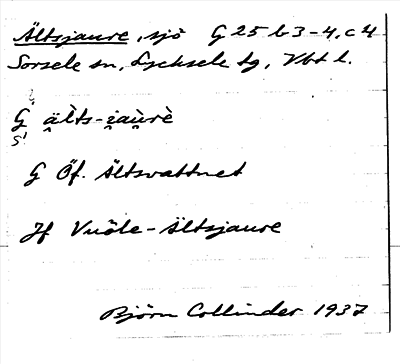 Ältsjaure, sjö G 25 b 3-4, c 4
Sorsele sn, Lycksele tg, Vbt l.
G ä̭l̀ts-i̭aù̯rè
S!
G Öf. Ältsvattnet
Jf Vuöle-Ältsjaure
Björn Collinder 1937